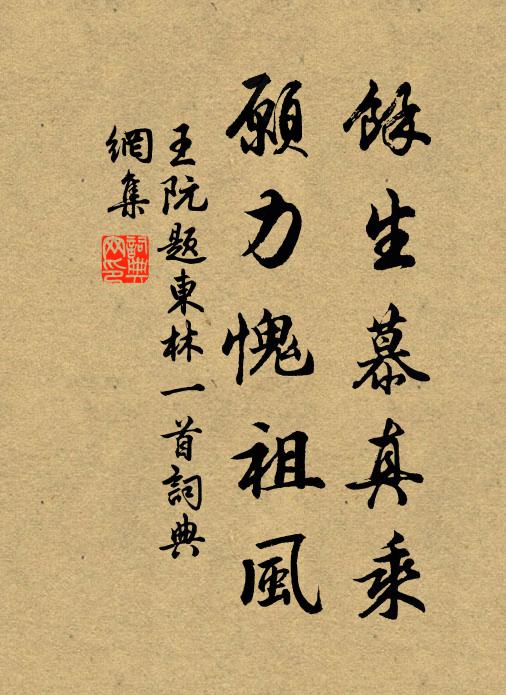 餘生慕真乘
願力愧祖風
王阮題東林一首詞典
網集
詞典
网印